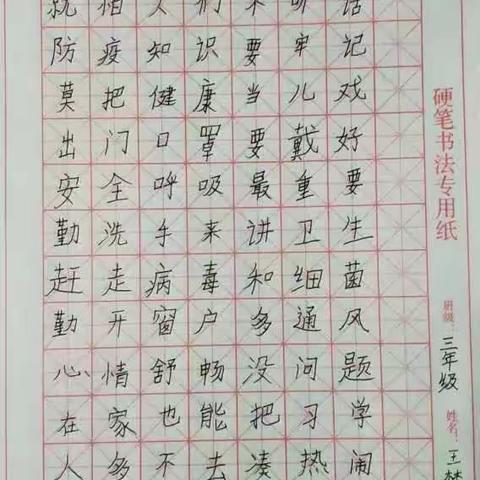 就怕人们不听话
防疫知识要牢记
莫把健康当儿戏
出门口罩要戴好
安全呼吸最重要
勤洗手来讲卫生
赶走病毒和细菌
勤开窗户多通风
心情舒畅没问题
在家也能把习学
人多不去凑热闹
硬笔书法专用纸
班级：三年级
姓名：王梦